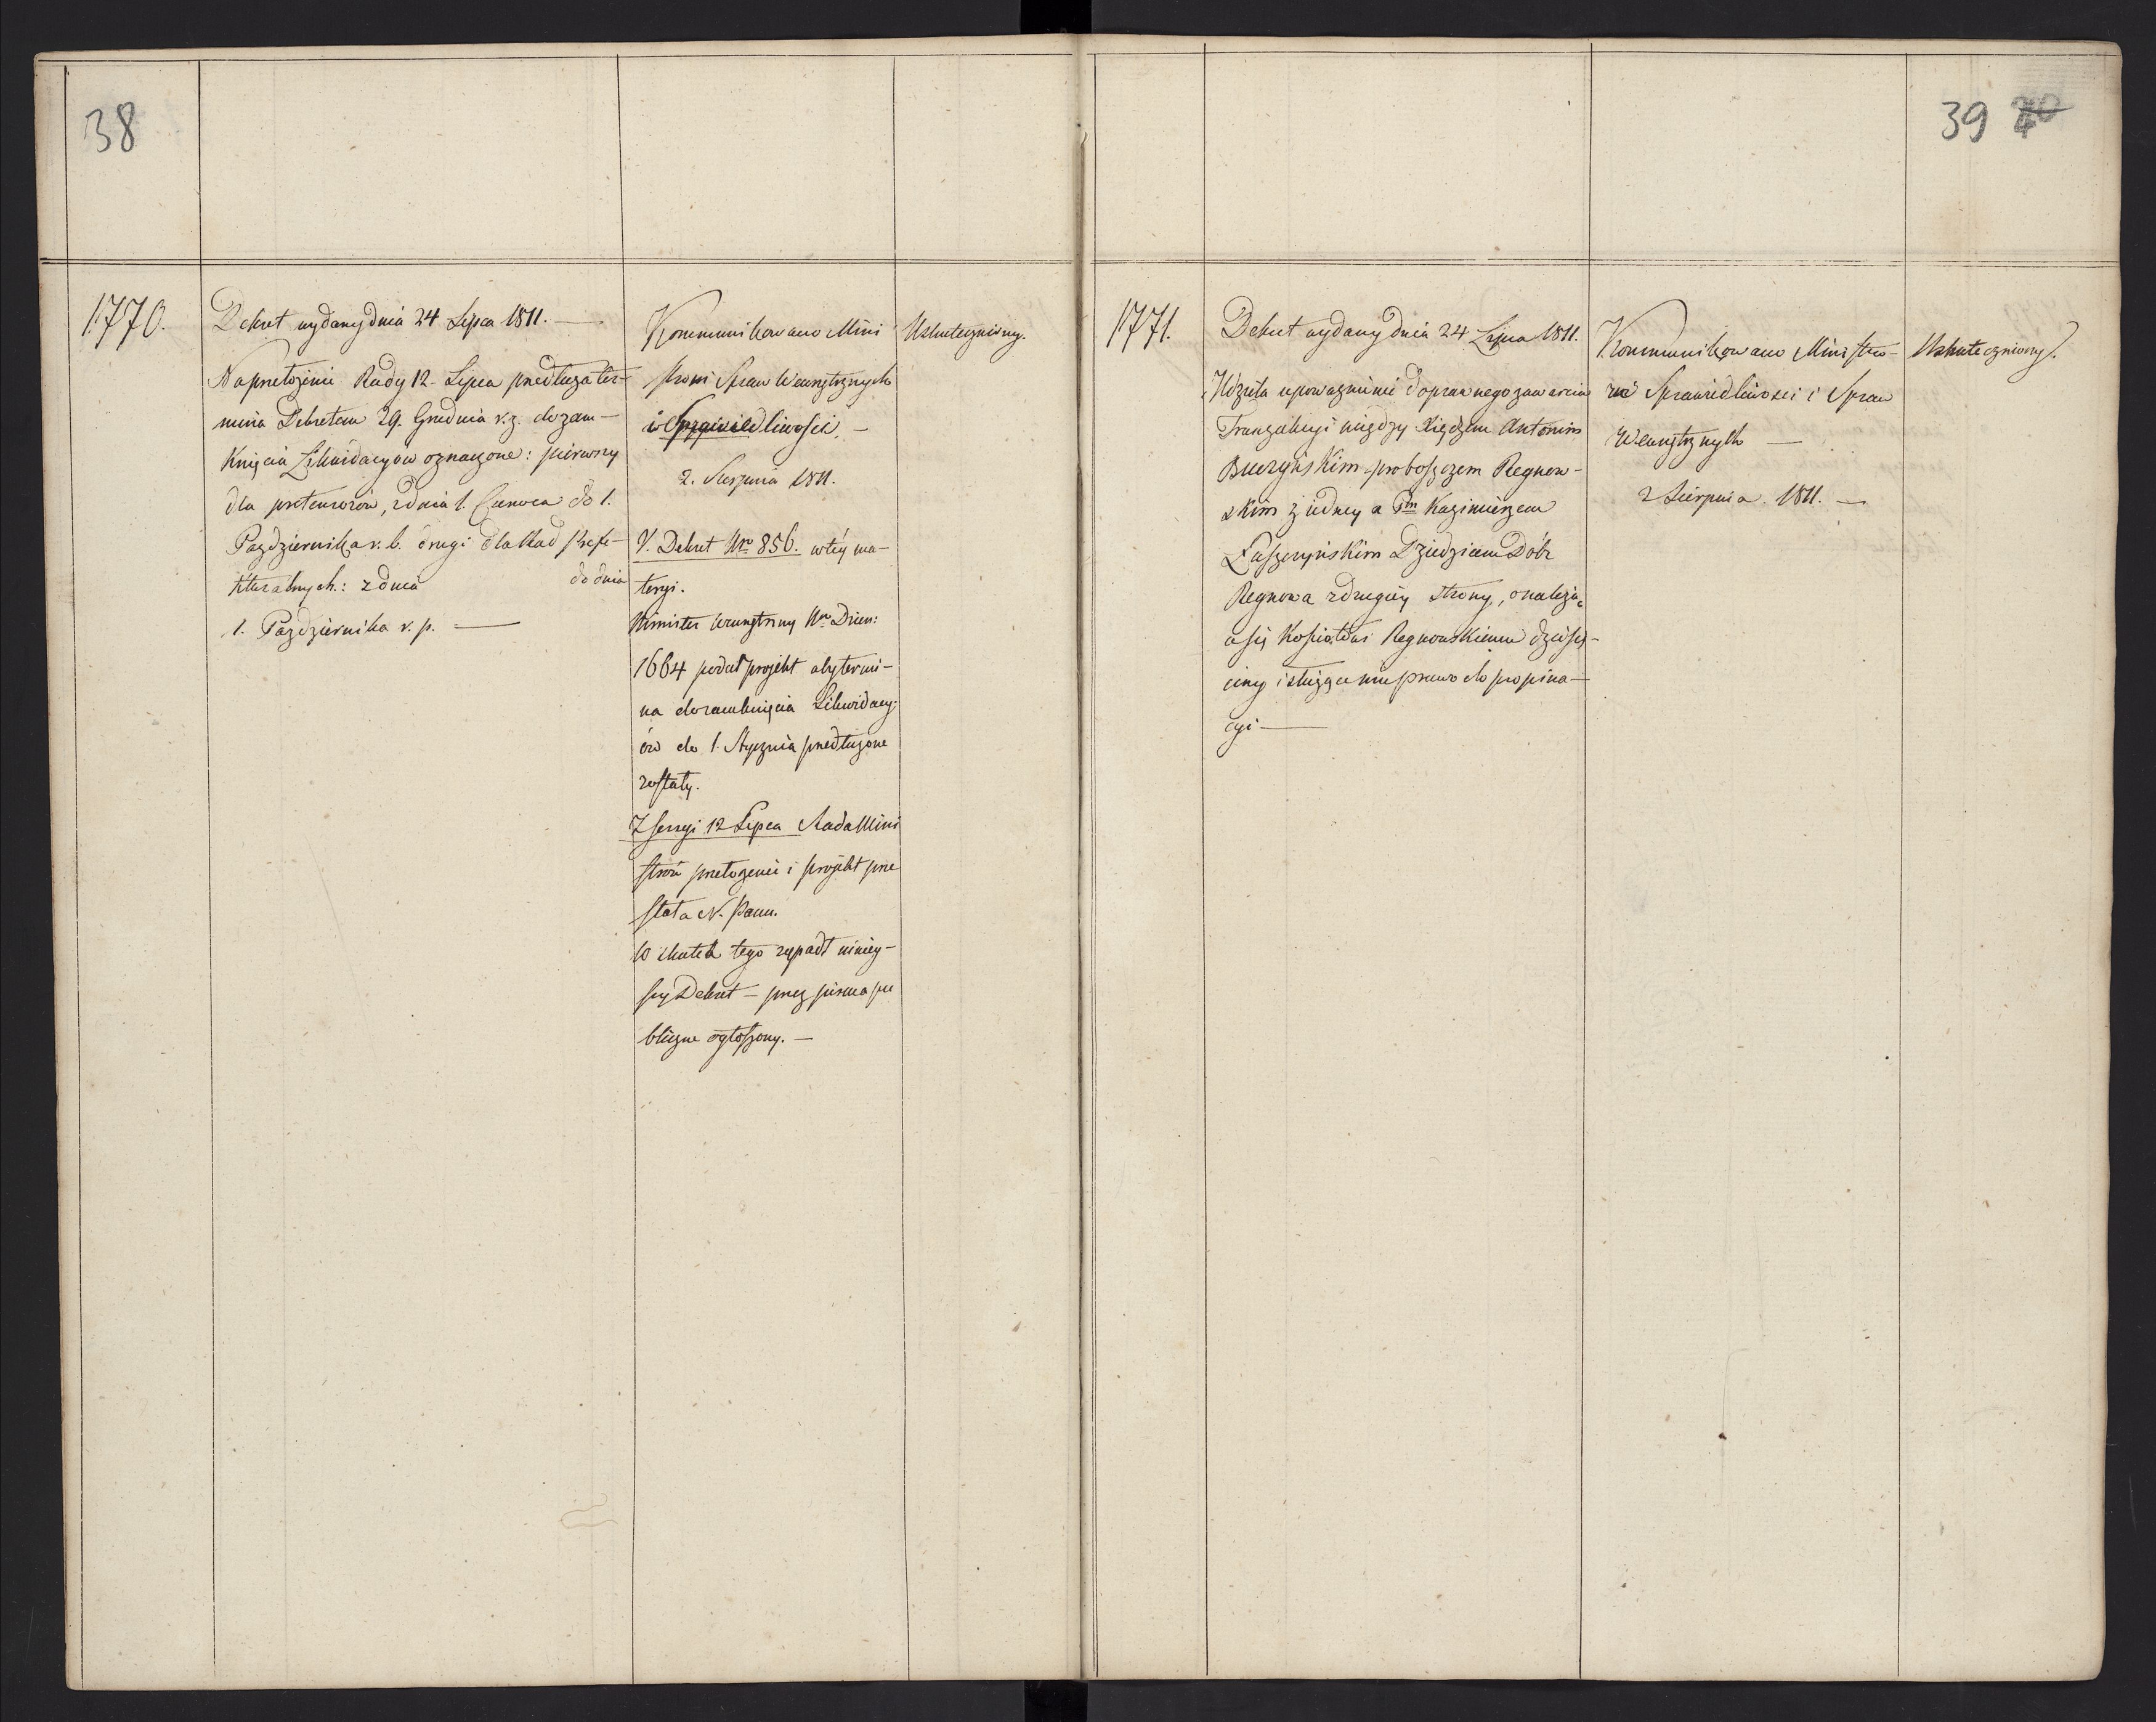 38
1770.
Dekret wydany dnia 24 Lipca 1811. —
Na przełożenie Rady 12 Lipca przedłuża ter-
mina Dekretem 29. Grudnia r. z. do zam-
knięcia Likwidacyow oznaczone: pierwszy
dla pretensorów, z dnia 1. Czerwca do 1.
Pazdziernika r. b. drugi dla Rad Prefe-
kturalnych: z dnia do dnia
1. Pazdziernika r. p. —
Kommunikowano Mini
strowi Spraw Wewnętrznych
i Sprawiedliwości, —
2. Sierpnia 1811.
V. Dekret Nro 856. w téy ma-
teryi.
Minister Wewnętrzny Nro Dzien:
1664 podał projekt aby termi-
na do zamknięcia Likwidacyi-
ów do 1. Stycznia przedłużone
zostały.
Z sessyi 12 Lipca Rada Mini
strów przełożenie i projekt prze
słała N. Panu.
W skutek tego zapadł niniey-
szy Dekret — przez pisma pu
bliczne ogłoszony. —
Uskuteczniony.
39 40
1771.
Dekret wydany dnia 24 Lipca 1811.
Udziela upoważnienie do prawnego zawarcia
Tranzakcyi między Xiędzem Antonim
Buczyńskim proboszczem Regnow-
skim z iedney a Pm Kazimierzem
Łuszczyńskim Dziedzicem Dóbr
Regnowa z drugiéy strony, o należą,
cą się Kościołowi Regnowskiemu dziesię-
cinę i służące mu prawo do propina-
cyi —
Kommunikowano Ministro-
wi Sprawiedliwości i Spraw
Wewnętrznych —
2 Sierpnia. 1811. —
Uskuteczniony.